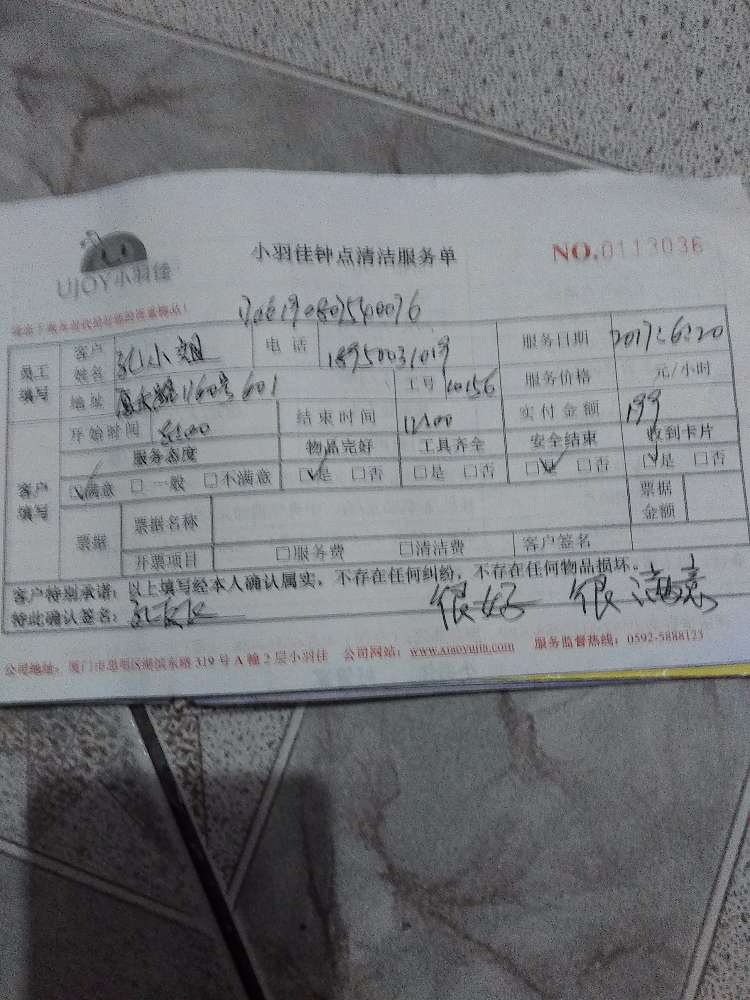 UJOY小羽佳
小羽佳钟点清洁服务单
NO.0113036
员工填写 客户姓名 孔小姐 电话 18950031019 服务日期 2017.6.20
地址 601 工号 10156 服务价格 元/小时
客户填写 开始时间 8:00 结束时间 12:00 实付金额 199
服务态度 物品完好 工具齐全 安全结束 收到卡片
☑满意 □一般 □不满意 ☑是 □否 □是 □否 ☑是 □否 ☑是 □否
票据 票据名称 票据金额
开票项目 □服务费 □清洁费 客户签名
客户特别承诺：以上填写经本人确认属实，不存在任何纠纷，不存在任何物品损坏。
特此确认签名：
很好 很满意
公司地址：厦门市思明区湖滨东路319号A幢2层小羽佳 公司网站：www.xiaoyujia.com 服务监督热线：0592-5888123